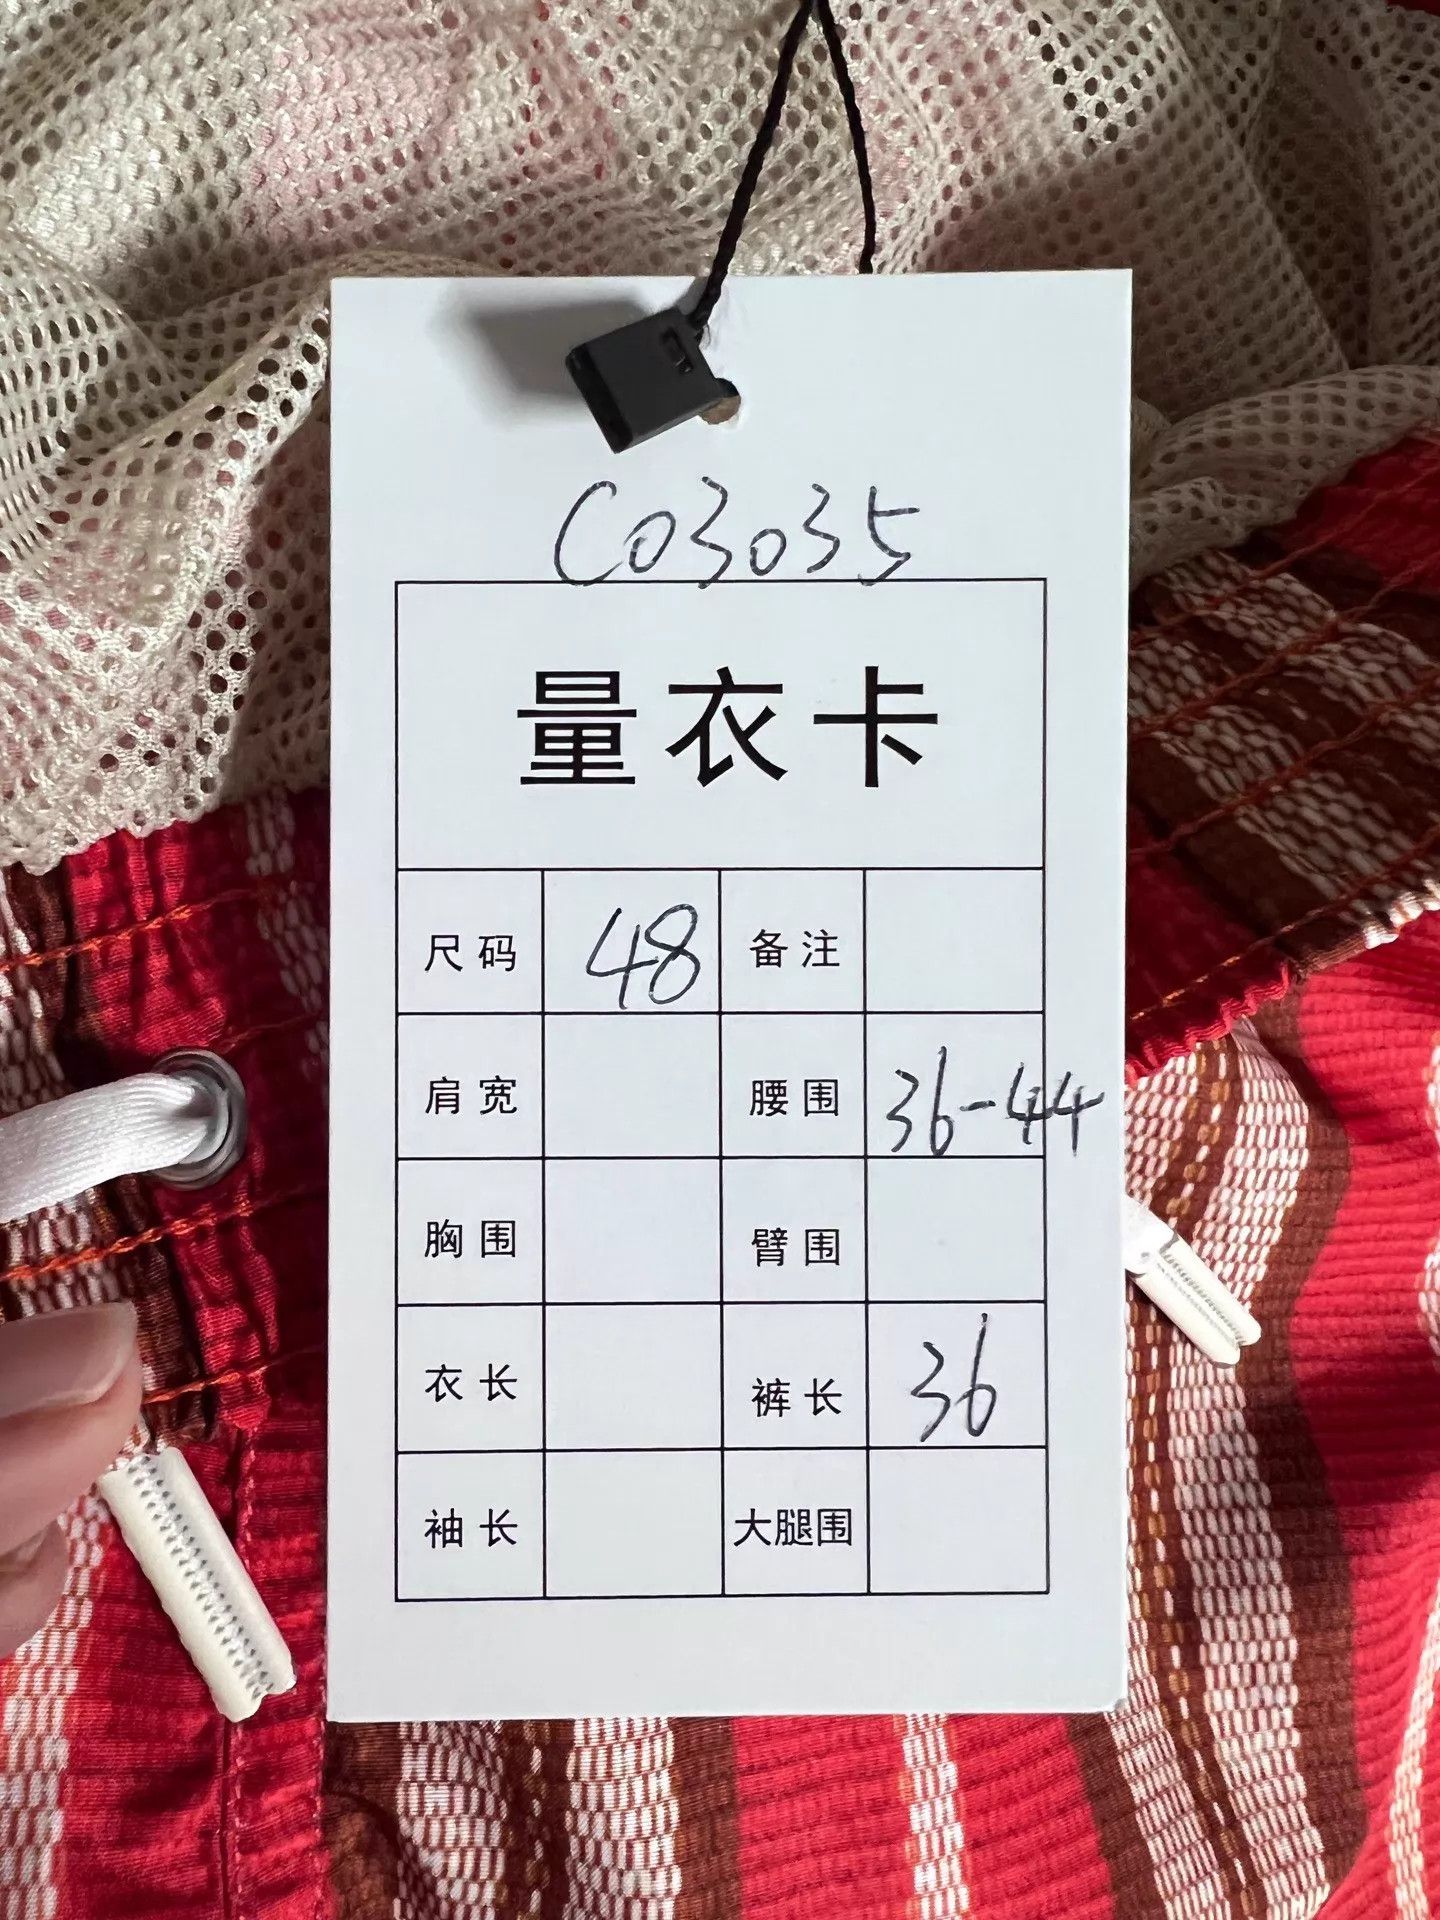 C03035
量衣卡
尺码 48 备注
肩宽 腰围 36-44
胸围 臂围
衣长 裤长 36
袖长 大腿围